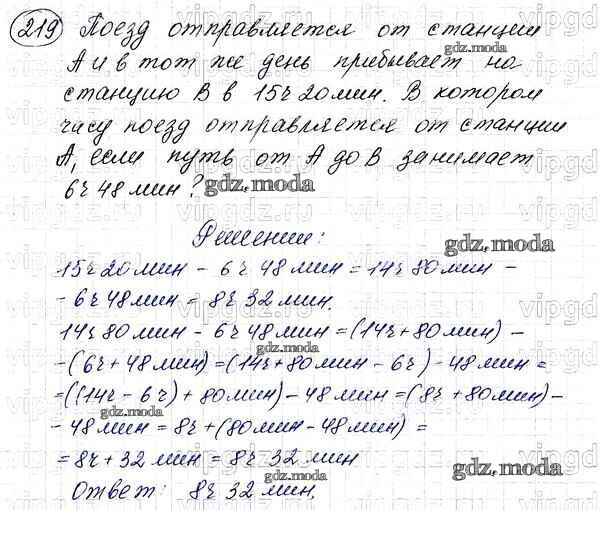 219 Поезд отправляется от станции
А и в тот же день прибывает на
станцию В в 15ч 20мин. В котором
часу поезд отправляется от станции
А, если путь от А до В занимает
6ч 48 мин?
Решение:
15ч 20мин - 6ч 48мин = 14ч 80мин -
- 6ч 48мин = 8ч 32 мин.
14ч 80мин - 6ч 48мин = (14ч + 80мин) -
- (6ч + 48мин) = (14ч + 80мин - 6ч) - 48мин =
= ((14ч - 6ч) + 80мин) - 48 мин = (8ч + 80мин) -
- 48мин = 8ч + (80мин - 48мин) =
= 8ч + 32 мин = 8ч 32 мин
Ответ: 8ч 32 мин.
gdz.moda
gdz.moda
gdz.moda
gdz.moda
gdz.moda
gdz.moda
gdz.moda